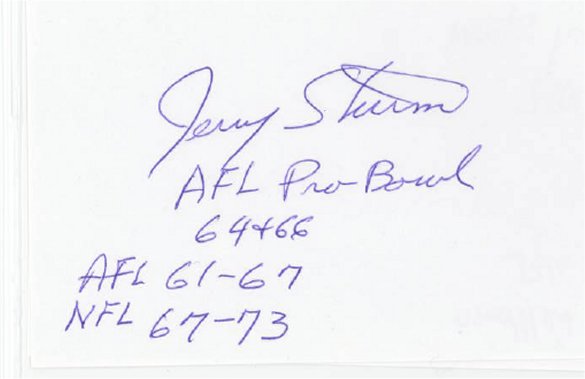 Jerry Sturm
AFL Pro-Bowl
64+66
AFL 61-67
NFL 67-73